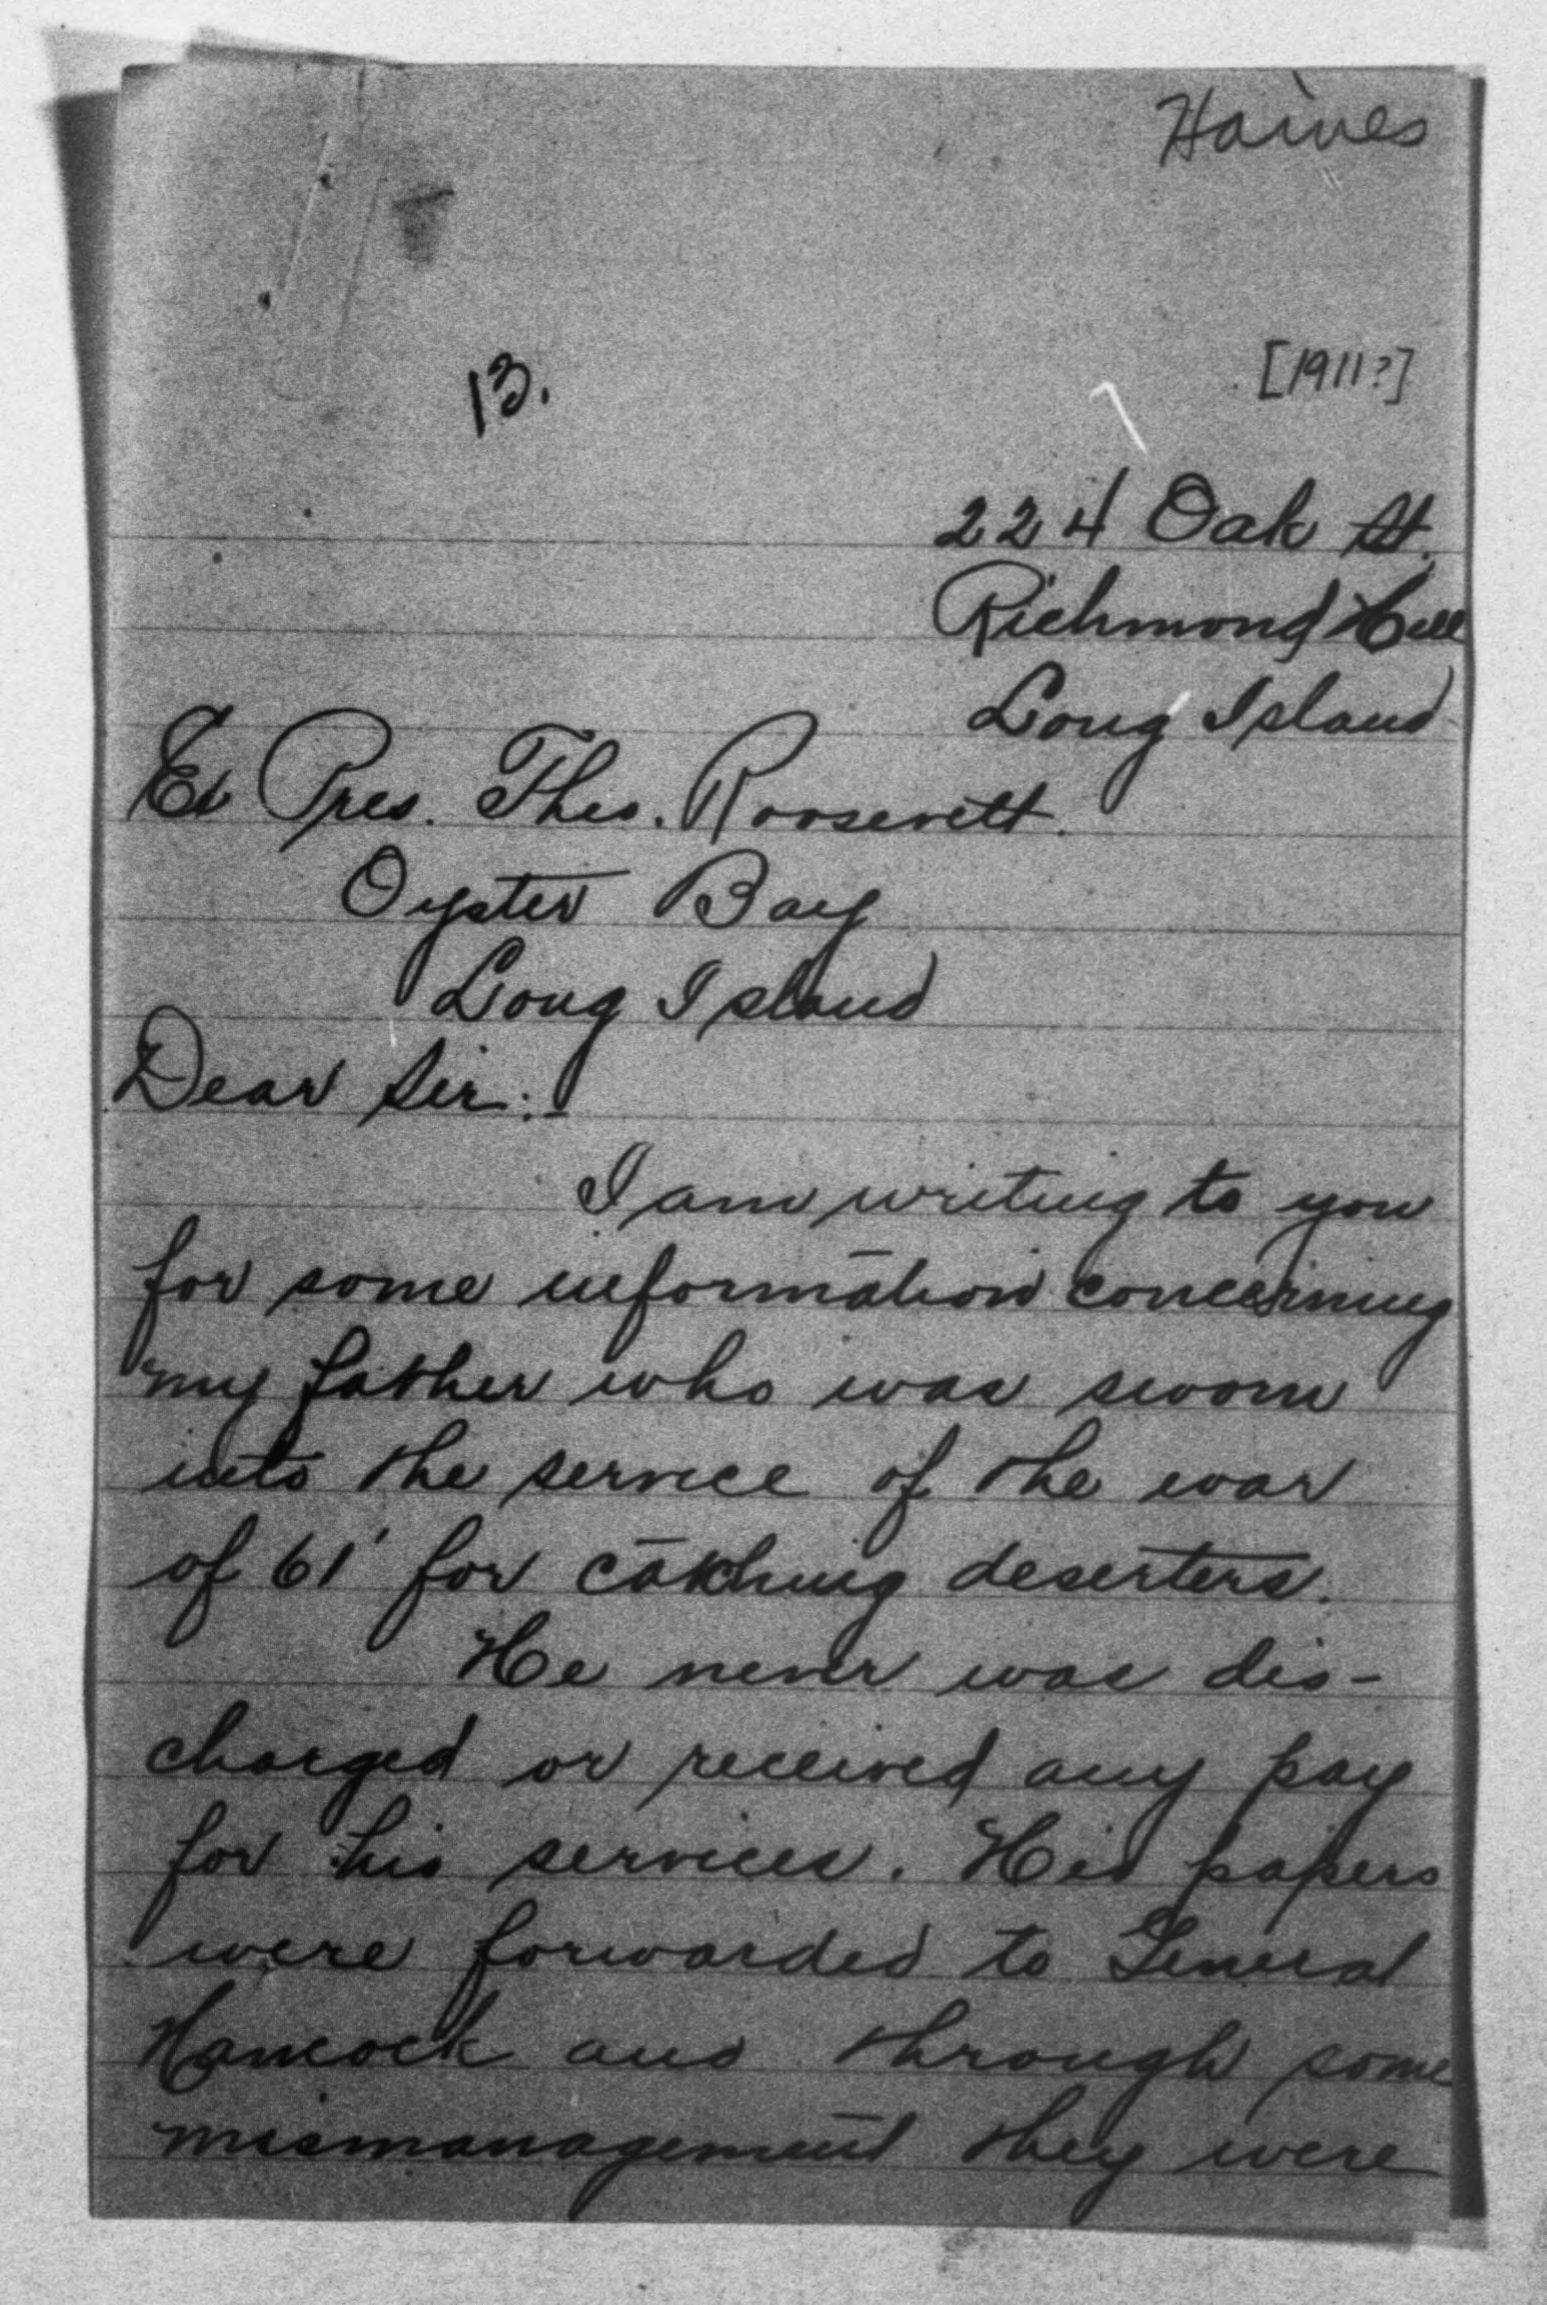 Haines
13.
[1911?]
224 Oak St.
Richmond Hill
Long Island
Ex Pres. Theo. Roosevelt.
Oyster Bay
Long Island
Dear Sir:-
I am writing to you
for some information concerning
my father who was sworn
into the service of the war
of 61' for catching deserters.
He never was dis-
charged or received any pay
for his services. His papers
were forwarded to General
Hancock and through some
mismanagement they were